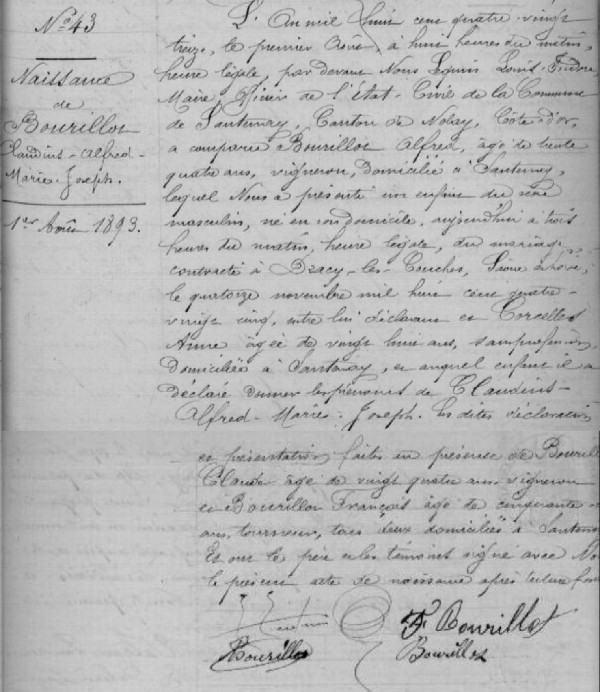 N° 43
Naissance
de
Bourillot
Claudius-Alfred-
Marie-Joseph.
1er Août 1893.
L'An mil huit cent quatre vingt
treize, le premier Août, à huit heures du matin,
heure légale, par devant Nous Seguin Louis
Maire, Officier de l'État-Civil de la Commune
de Santenay, Canton de Nolay, Côte-d'or,
a comparu Bourillot Alfred, âgé de trente
quatre ans, vigneron, domicilié à Santenay,
lequel Nous a présenté un enfant du sexe
masculin, né en son domicile, aujourd'hui à trois
heures du matin, heure légale, du mariage
contracté à Dracy-les-Couches, Saône et Loire,
le quatorze novembre mil huit cent quatre-
vingt cinq, entre lui déclarant et Corcellot
Anne âgée de vingt huit ans, sans profession,
domiciliée à Santenay, et auquel enfant il a
déclaré donner les prénoms de Claudius-
Alfred-Marie-Joseph. Les dites déclaration
et présentation faites en présence de Bourill
Claude âgé de vingt quatre ans, vigneron
et Bourillot François âgé de cinquante
ans, tourneur, tous deux domiciliés à Santenay
Et ont le père et les témoins signé avec No
le présent acte de naissance après lecture fai
F. Bourillot
Bourillot Bourillot